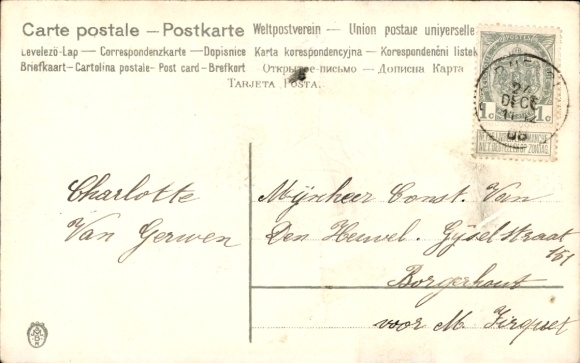 Carte postale — Postkarte Weltpostverein — Union postale universelle
Levelező-Lap — Correspondenzkarte — Dopisnice Karta korespondencyjna — Korespondenční lístek
Briefkaart - Cartolina postale - Post card - Brefkort Открытое письмо — Дописна Карта
TARJETA POSTA.
24
DECE
08
1c 1c
Charlotte
Van Gerwen
Mijnheer Const. Van
Den Heuvel. Gijselstraat
151
Borgerhout
voor M.